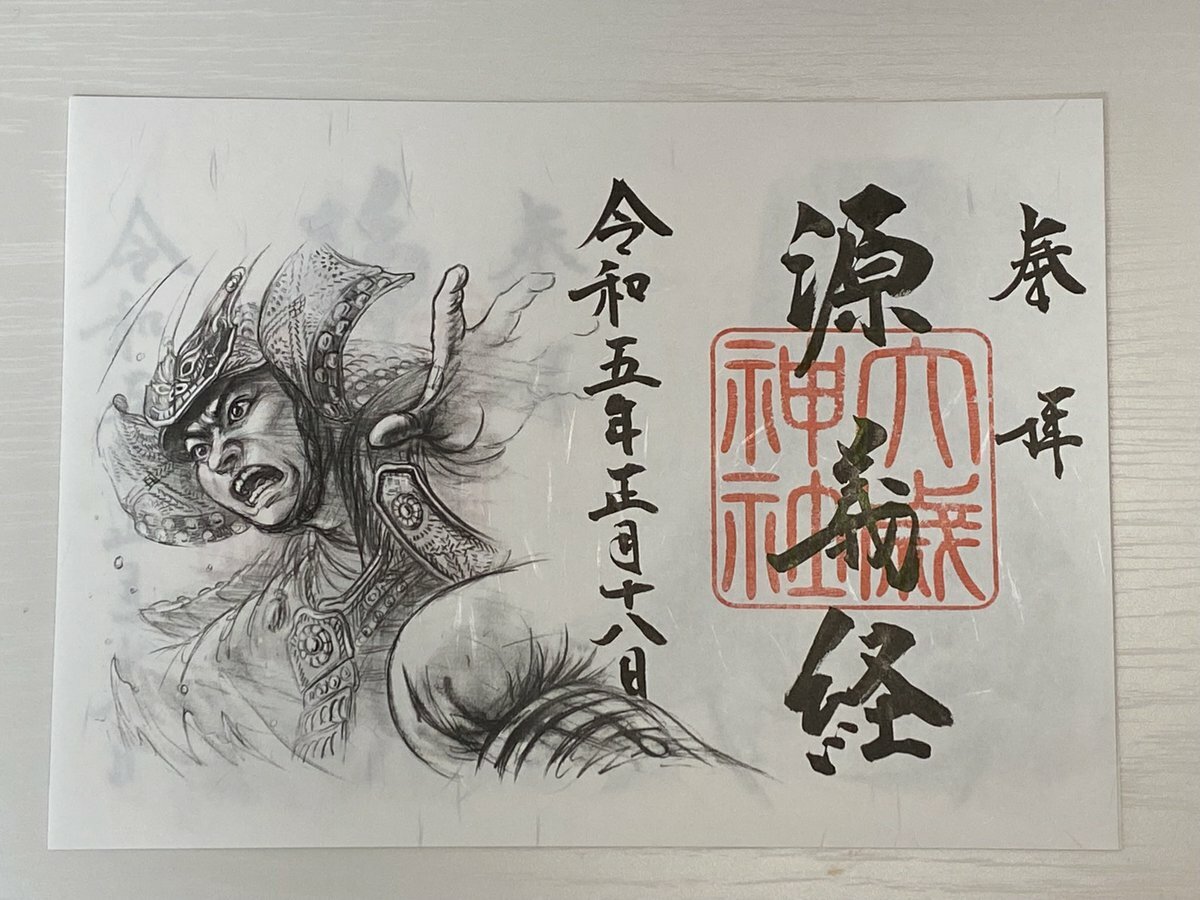 奉拝
源義経
大歳
神社
令和五年正月十八日